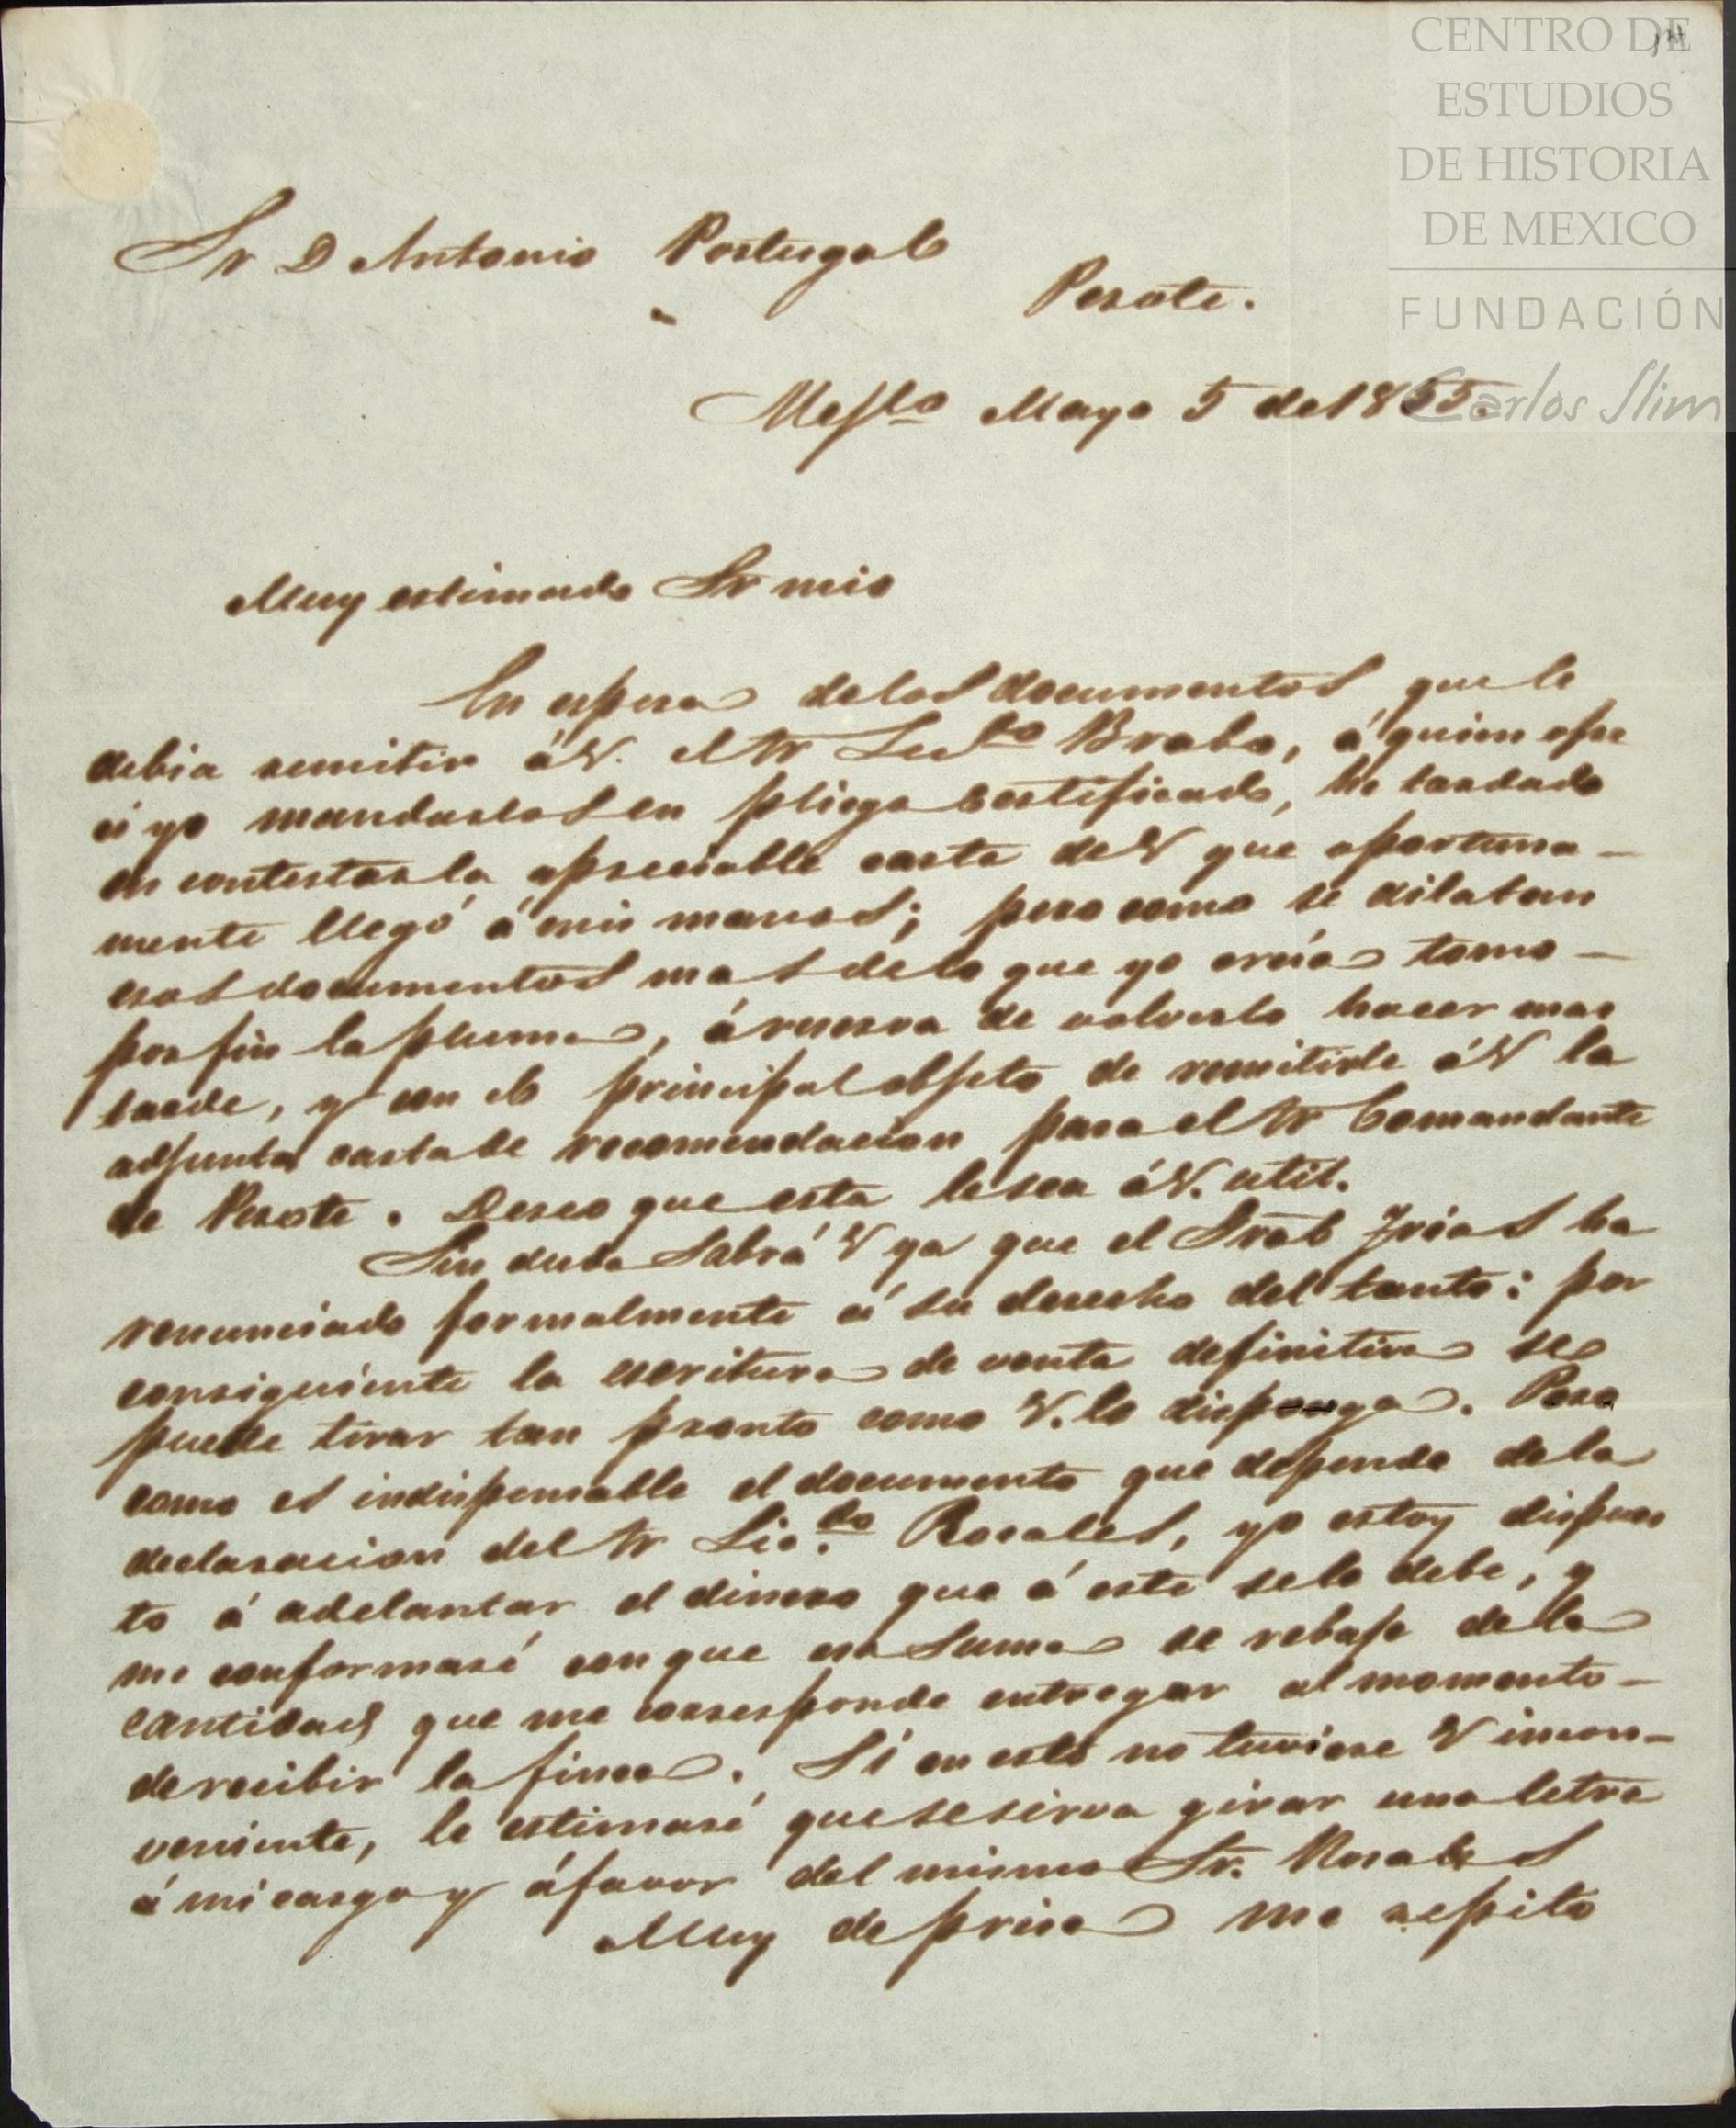 CENTRO DE
ESTUDIOS
DE HISTORIA
DE MEXICO
FUNDACIÓN
Carlos Slim
Sr D Antonio Portugal
Perote.
Mayo 5 de 1855.
Muy estimado Sr mio
En espera de los documentos que le
debia remitir á V. el Sr Brabo, á quien ofre
cí yo mandarlos en pliego certificado, he tardado
en contestar la apreciable carta de V que oportuna-
mente llegó á mis manos; pero como se dilatan
esos documentos mas de lo que yo creía tomo-
por fin la pluma, á reserva de volverlo hacer mas
tarde, y con el principal objeto de remitirle á V la
adjunta carta de recomendacion para el Sr Comandante
de Perote. Deseo que esta le sea á V. util.
Sin duda sabrá V ya que el Sr Frias ha
renunciado formalmente á su derecho del tanto: por
consiguiente la escritura de venta definitiva se
puede tirar tan pronto como V. lo disponga. Pero
como es indispensable el documento que depende de la
declaracion del Sr Lic.do Rosales, yo estoy dispues
to á adelantar el dinero que á este se le debe, y
me conformaré con que esa suma se rebaje de la
cantidad que me corresponde entregar al momento-
de recibir la finca. Si en esto no tuviese V incon-
veniente, le estimaré que se sirva girar una letra
á mi cargo y á favor del mismo Sr. Rosales
Muy de prisa me repito